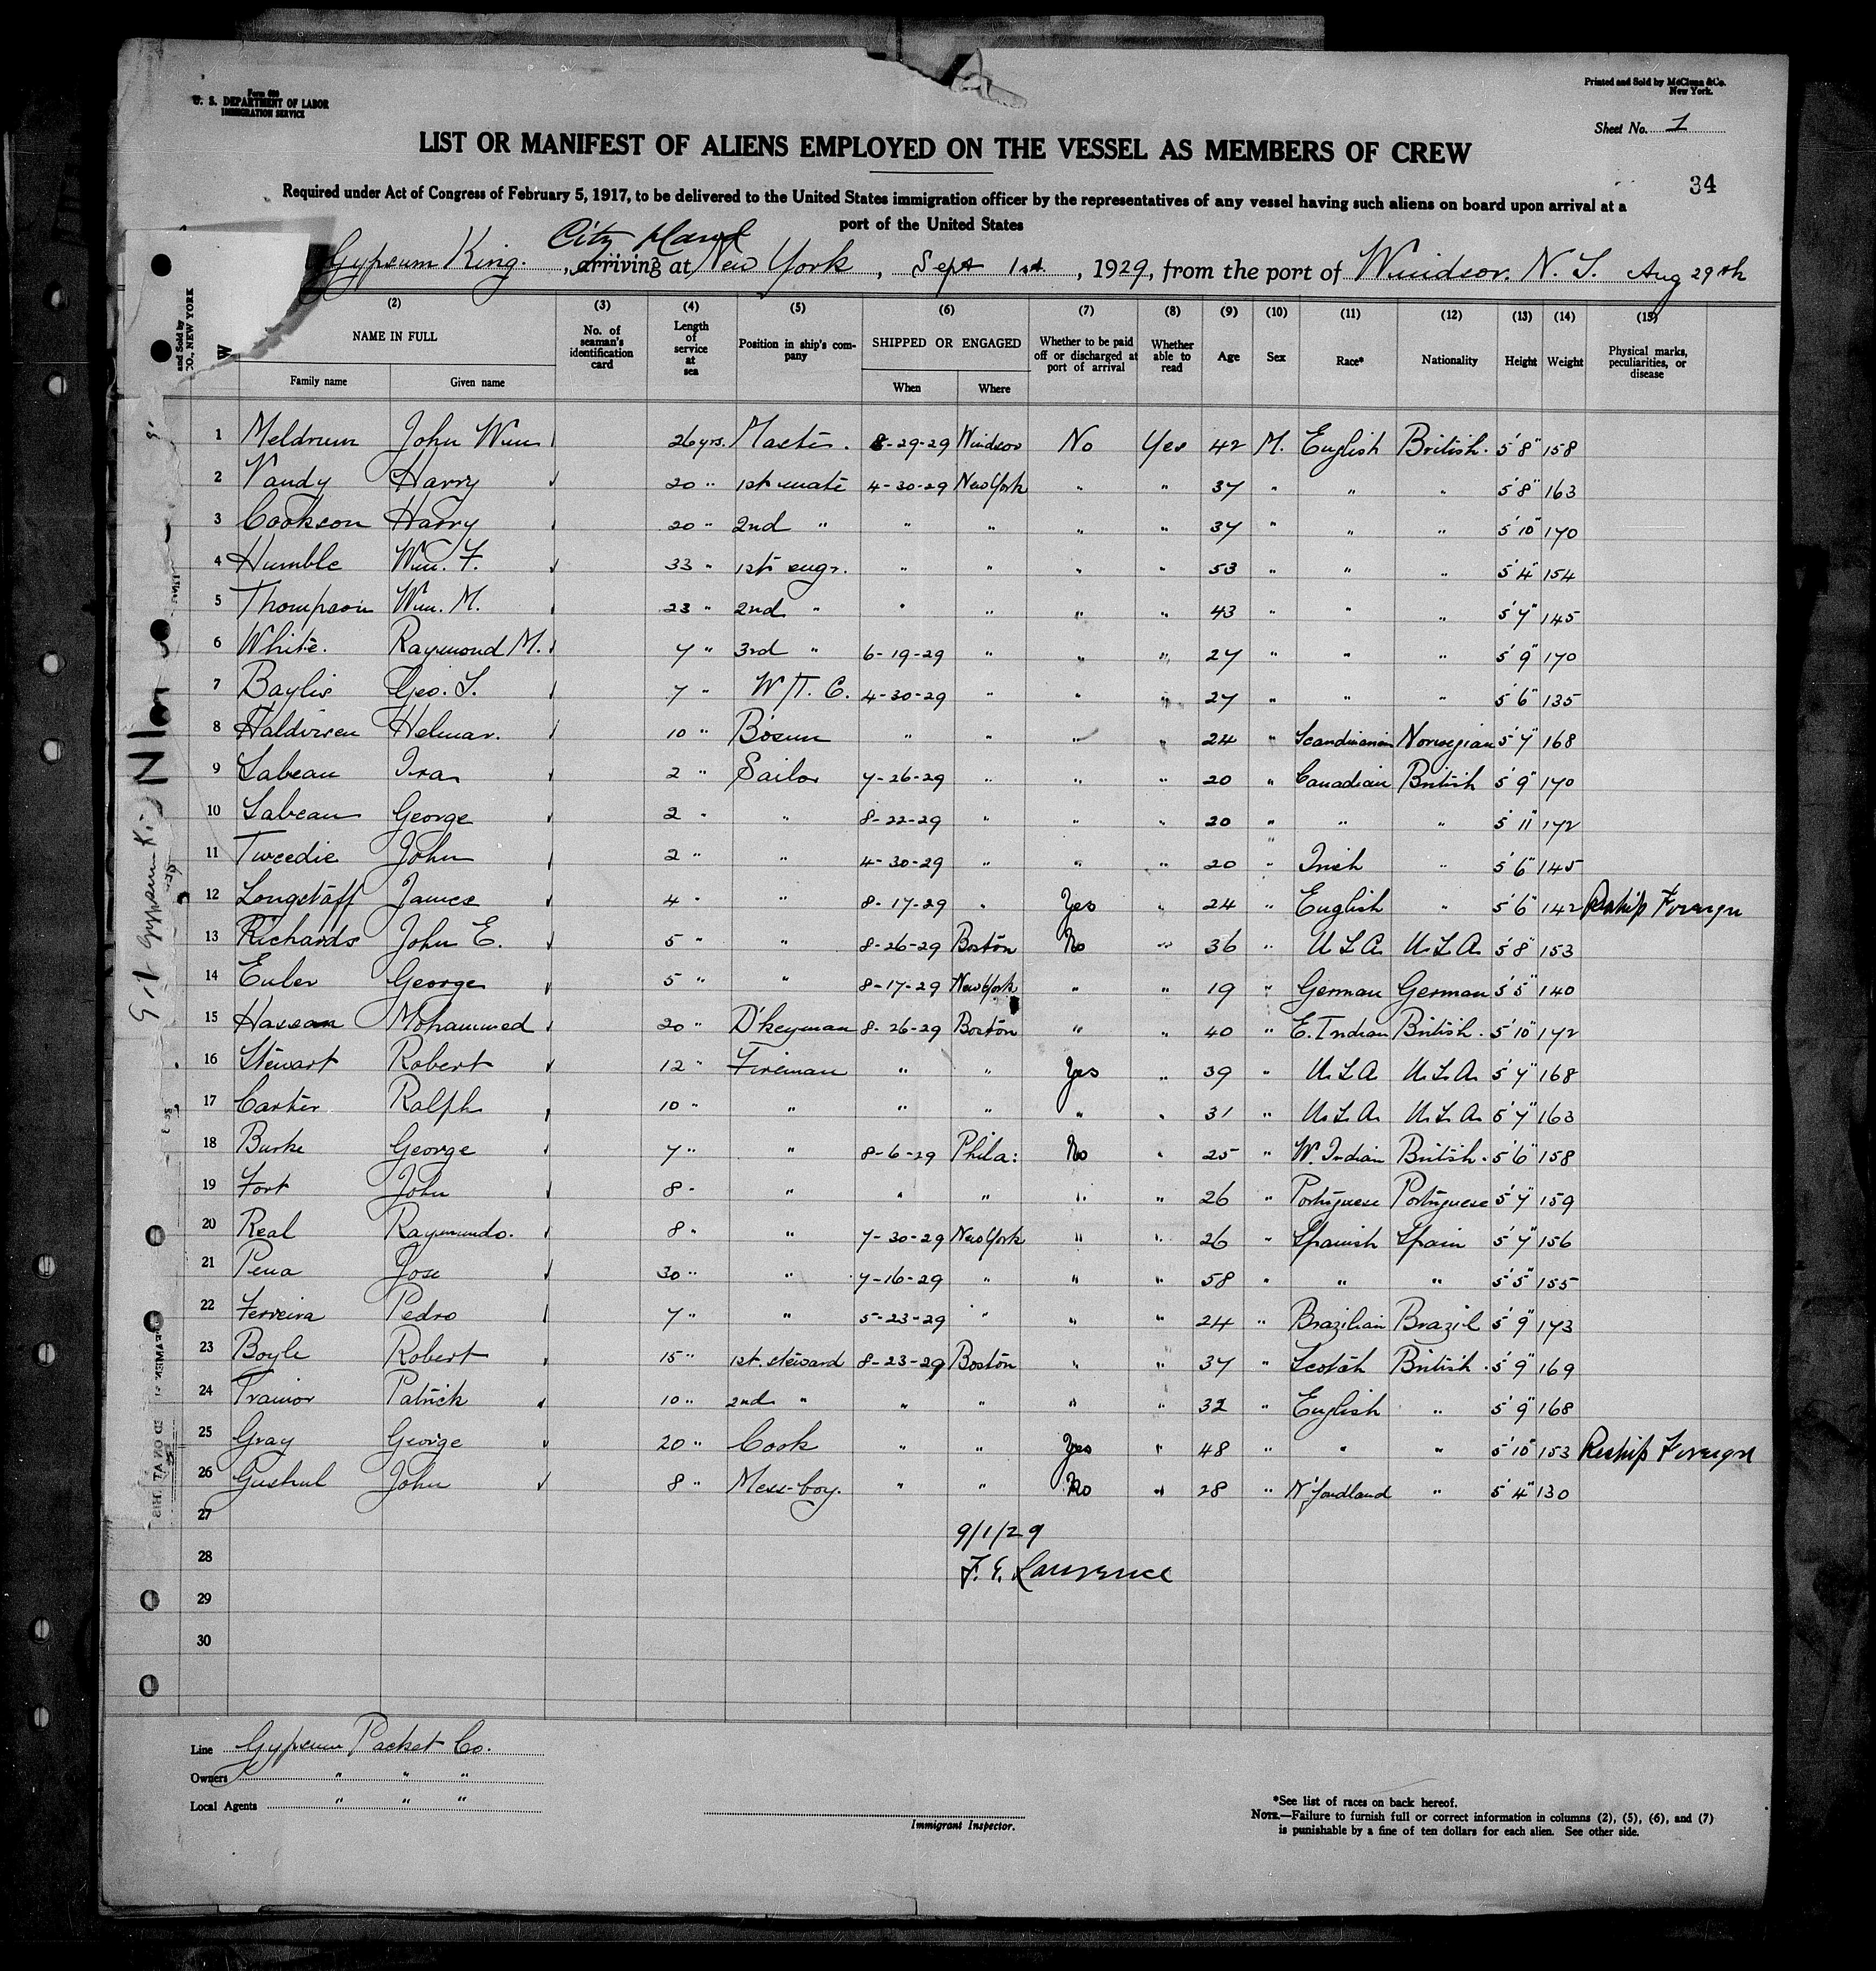 Form 680
U. S. DEPARTMENT OF LABOR
IMMIGRATION SERVICE
Printed and Sold by McClunn & Co.
New York.
Sheet No. 1
LIST OR MANIFEST OF ALIENS EMPLOYED ON THE VESSEL AS MEMBERS OF CREW
34
Required under Act of Congress of February 5, 1917, to be delivered to the United States immigration officer by the representatives of any vessel having such aliens on board upon arrival at a
port of the United States
City Island
Gypsum King. , arriving at New York , Sept 1st , 1929, from the port of Windsor. N. S. Aug 29th
and Sold by
CO., NEW YORK
(2) (3) (4) (5) (6) (7) (8) (9) (10) (11) (12) (13) (14) (15)
NAME IN FULL No. of seaman's identification card Length of service at sea Position in ship's company SHIPPED OR ENGAGED Whether to be paid off or discharged at port of arrival Whether able to read Age Sex Race* Nationality Height Weight Physical marks, peculiarities, or disease
Family name Given name When Where
1 Meldrum John Wm 26 yrs. Master. 8-29-29 Windsor No Yes 42 M. English British. 5'8" 158
2 Vandy Harry 20 " 1st mate 4-30-29 New York " " 37 " " " 5'8" 163
3 Cookson Harry 20 " 2nd " " " " " 37 " " " 5'10" 170
4 Humble Wm. F. 33 " 1st engr. " " " " 53 " " " 5'4" 154
5 Thompson Wm. M. 23 " 2nd " " " " " 43 " " " 5'7" 145
6 White. Raymond M. 7 " 3rd " 6-19-29 " " " 27 " " " 5'9" 170
7 Baylis Geo. S. 7 " W/T. O. 4-30-29 " " " 27 " " " 5'6" 135
8 Haldorsen Helmar. 10 " Bosun " " " " 24 " Scandinavian Norwegian 5'7" 168
9 Sabean Ira 2 " Sailor 7-26-29 " " " 20 " Canadian British 5'9" 170
10 Sabean George 2 " " 8-22-29 " " " 20 " " " 5'11" 172
11 Tweedie John 2 " " 4-30-29 " " " 20 " Irish " 5'6" 145
12 Longstaff James 4 " " 8-17-29 " Yes " 24 " English " 5'6" 142 Reship Foreign
13 Richards John E. 5 " " 8-26-29 Boston No " 36 " U.S.A. U.S.A. 5'8" 153
14 Euler George 5 " " 8-17-29 New York " " 19 " German German 5'5" 140
15 Hassan Mohammed 20 " D'keyman 8-26-29 Boston " " 40 " E. Indian British. 5'10" 172
16 Stewart Robert 12 " Fireman " " Yes " 39 " U.S.A. U.S.A. 5'7" 168
17 Carter Ralph 10 " " " " " " 31 " U.S.A. U.S.A. 5'7" 163
18 Burke George 7 " " 8-6-29 Phila: No " 25 " W. Indian British. 5'6" 158
19 Fort John 8 " " " " " " 26 " Portuguese Portuguese 5'7" 159
20 Real Raymundo. 8 " " 7-30-29 New York " " 26 " Spanish Spain 5'7" 156
21 Pena Jose 30 " " 7-16-29 " " " 58 " " " 5'5" 155
22 Ferreira Pedro 7 " " 5-23-29 " " " 24 " Brazilian Brazil 5'9" 173
23 Boyle Robert 15 " 1st. steward 8-23-29 Boston " " 37 " Scotch British. 5'9" 169
24 Trainor Patrick 10 " 2nd " " " " " 32 " English " 5'9" 168
25 Gray George 20 " Cook " " Yes " 48 " " " 5'10" 153 Reship Foreign
26 Gushul John 8 " Mess-boy. " " No " 28 " N'foundland " 5'4" 130
27
9/1/29
28
F. E. Lawrence
29
30
Line Gypsum Packet Co.
Owners " " "
Local Agents " " "
Immigrant Inspector.
*See list of races on back hereof.
NOTE.—Failure to furnish full or correct information in columns (2), (5), (6), and (7)
is punishable by a fine of ten dollars for each alien. See other side.